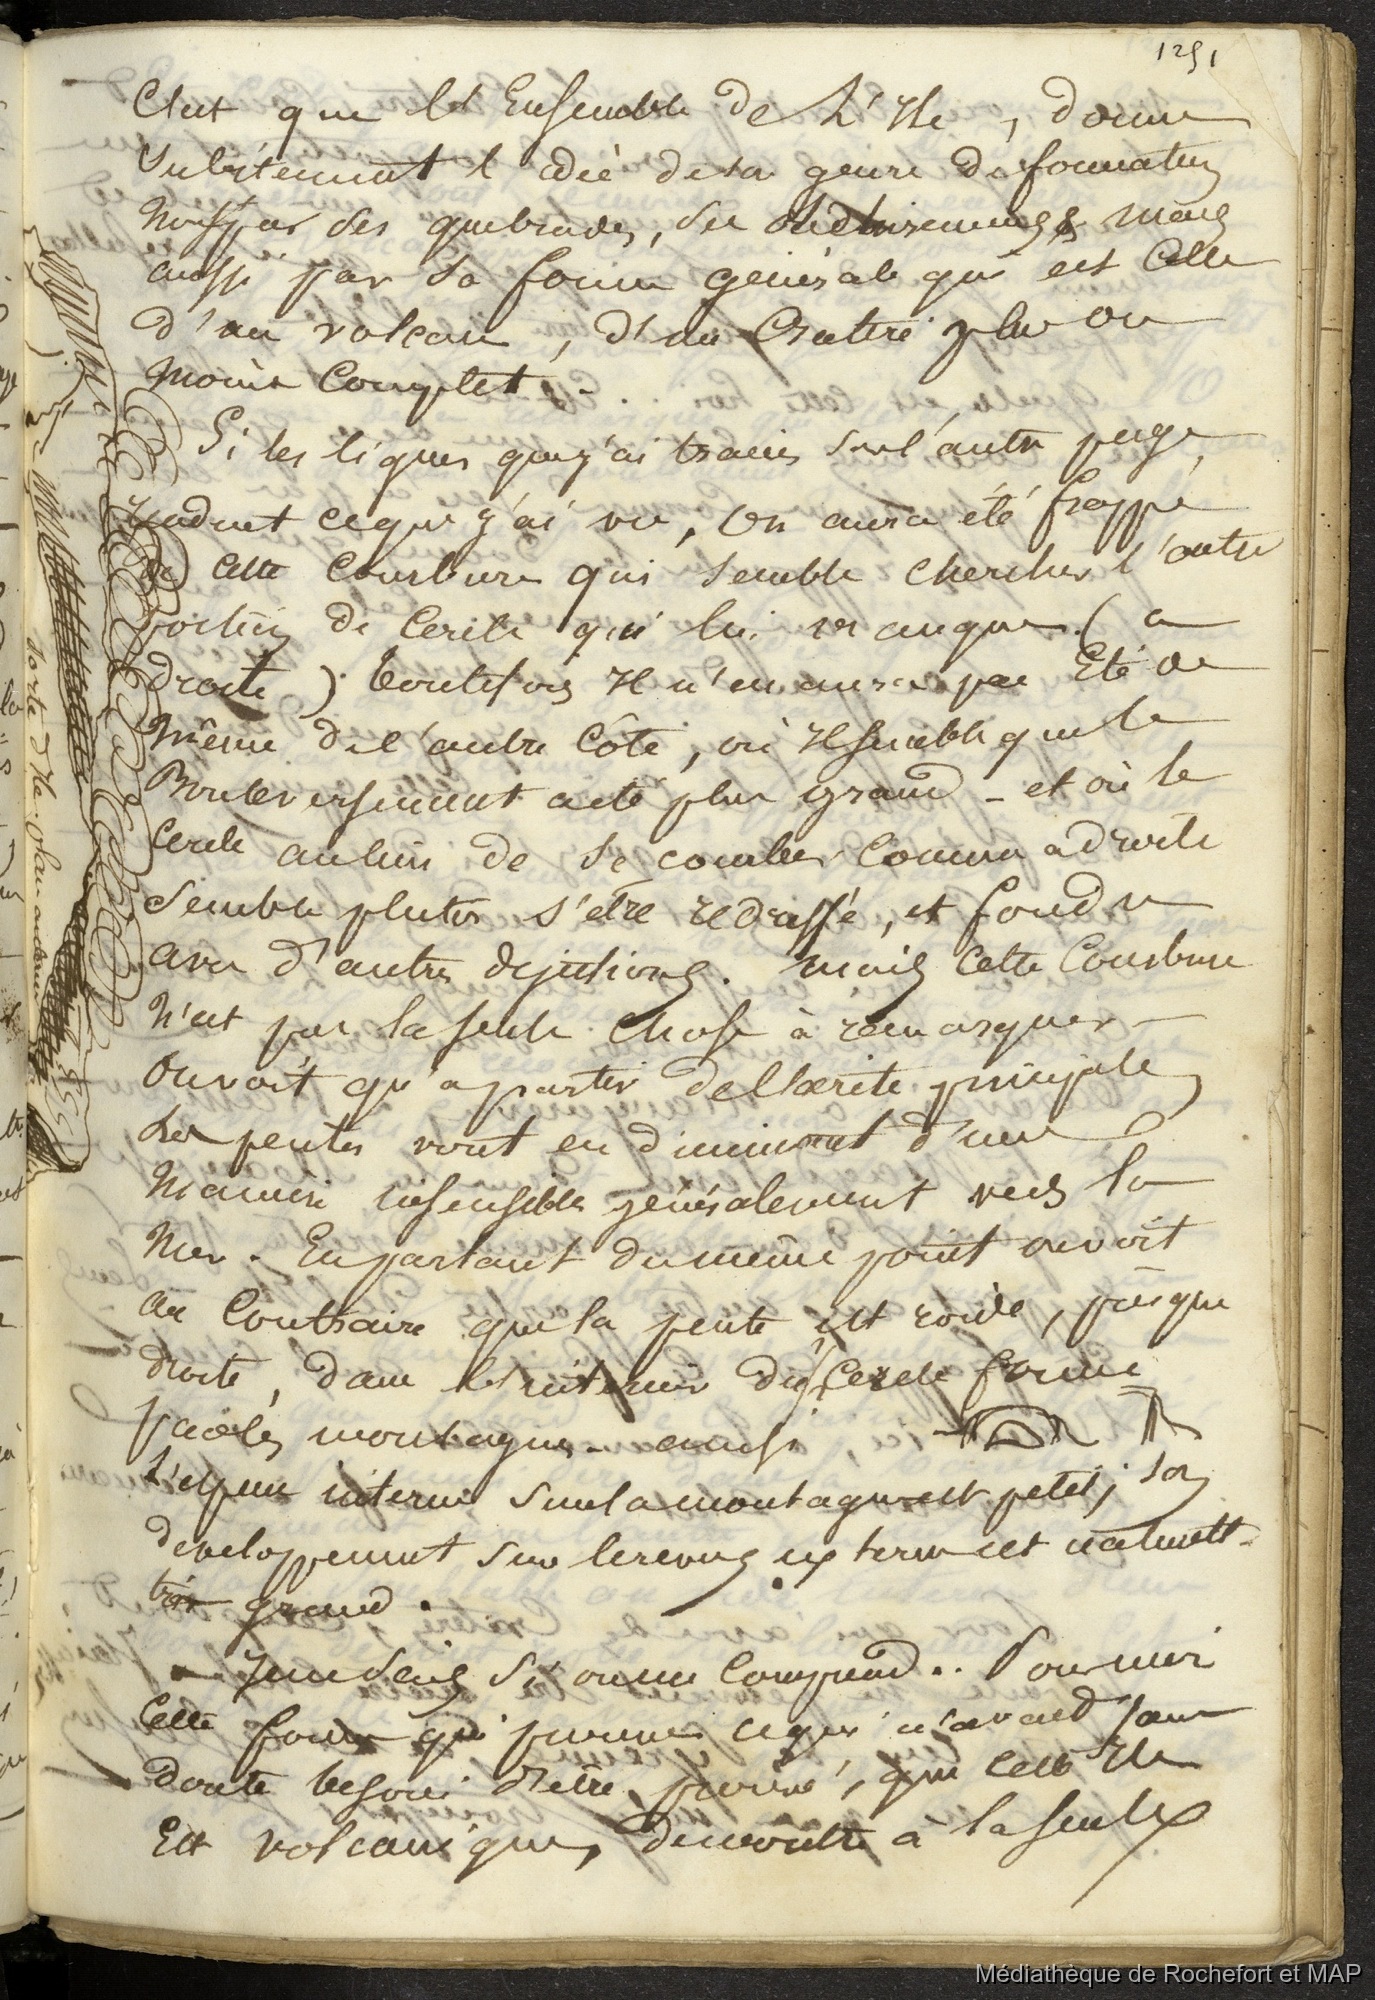 1251
C'est que l'Ensemble de L'Ile, donne
Subitement l'idée de son genre de formation
Non par des quebrades, des déchirements mais
aussi par sa forme générale qui est Celle
d'un volcan, d'un Cratère plus ou
moins Complet.
Si les lignes que j'ai tracées sur l'autre page
rendent ce que j'ai vu, On aura été frappé
de Cette Courbure qui semble chercher l'autre
portion de Cercle qui lui manque (a
droite) toutefois Il n'en aura pas Eté de
même de l'autre Côté, où Il semble que le
Bouleversement a été plus grand - et où le
Cercle au lieu de se courber Comme a droite
Semble plutôt s'être redressé, et fondu
avec d'autres déjections. Mais Cette Courbure
N'est pas la seule Chose à remarquer -
On voit qu'a partir de l'arête principale
Les pentes vont en diminuant d'une
Manière insensible généralement vers la
Mer. En partant du même point on voit
au Contraire que la pente est roide, presque
droite, dans l'intérieur du Cercle formé
par les montagnes. ainsi
L'espace interne sur la montagne est petit; son
developpement sur le revers externe est
très grand.
Je ne sais si on me Comprend.. Pour moi
Cette forme qui prouve ce qui n'avait sans
doute besoin d'être prouvé, que Cette Ile
Est volcanique, demontre à la seule
sorte d'Ile plan